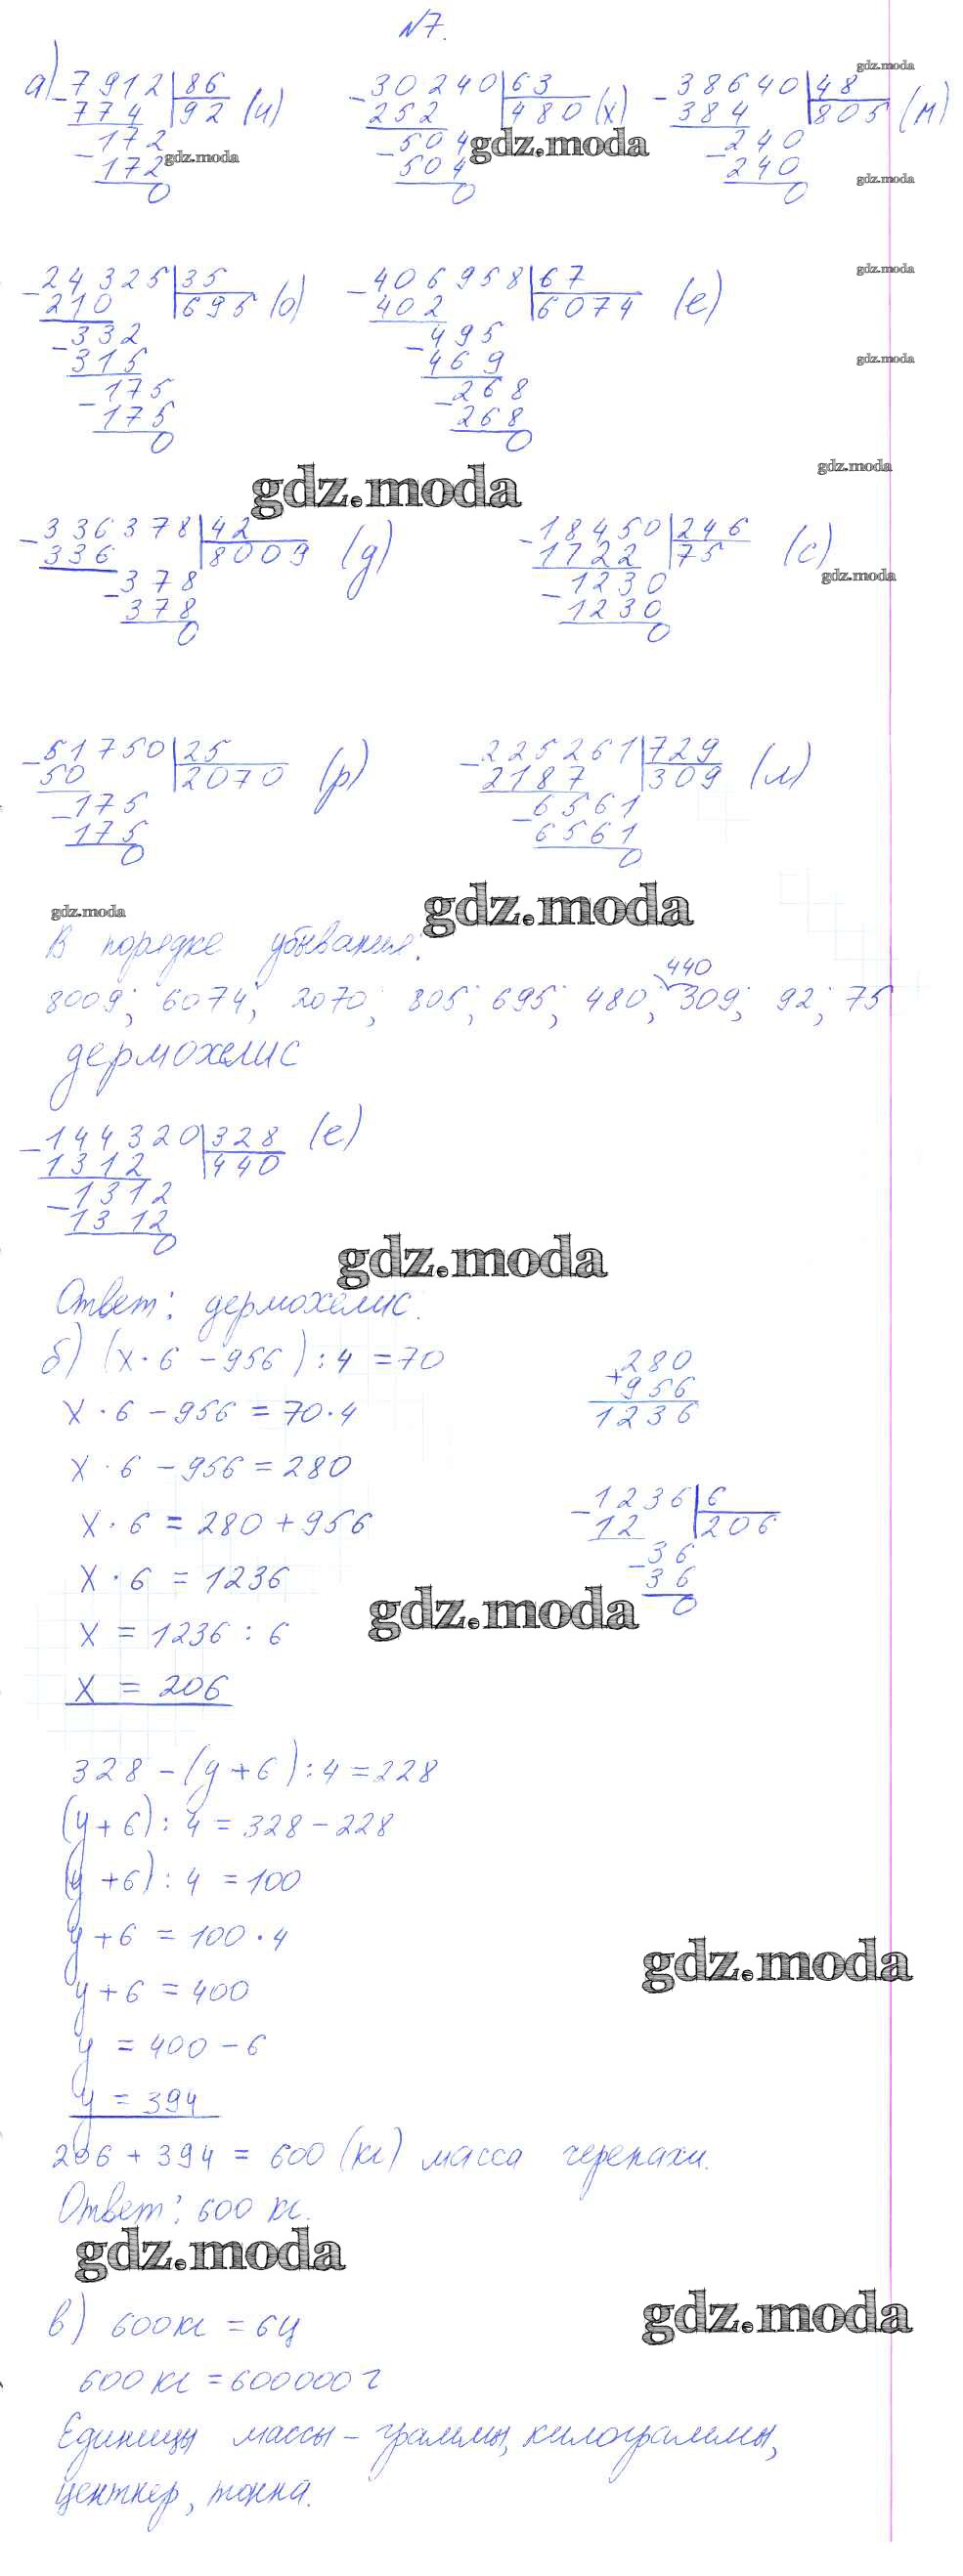 №7.
а) 7912 | 86      30240 | 63      38640 | 48
- 774 | 92 (и)      - 252 | 480 (х)      - 384 | 805 (м)
- 172      - 504      - 240
172      504      240
0      0      0
gdz.moda gdz.moda gdz.moda gdz.moda
- 24325 | 35      - 406958 | 67
210 | 695 (о)      402 | 6074 (е)
- 332      - 495
315      469
- 175      - 268
175      268
0      0
gdz.moda gdz.moda gdz.moda gdz.moda
- 336378 | 42      - 18450 | 246
336 | 8009 (д)      1722 | 75 (с)
- 378      - 1230
378      1230
0      0
gdz.moda
- 51750 | 25      - 225261 | 729
50 | 2070 (р)      2187 | 309 (л)
- 175      - 6561
175      6561
0      0
gdz.moda gdz.moda
В порядке убывания:
440
8009; 6074; 2070; 805; 695; 480; 309; 92; 75
дермохелис
- 144320 | 328 (е)
1312 | 440
- 1312
1312
0
gdz.moda
Ответ: дермохелис.
б) (х · 6 - 956) : 4 = 70      280
х · 6 - 956 = 70 · 4      + 956
1236
х · 6 - 956 = 280
х · 6 = 280 + 956      - 1236 | 6
12 | 206
х · 6 = 1236      - 36
36
gdz.moda      0
х = 1236 : 6
х = 206
328 - (у + 6) : 4 = 228
(у + 6) : 4 = 328 - 228
(у + 6) : 4 = 100
у + 6 = 100 · 4
gdz.moda
у + 6 = 400
у = 400 - 6
у = 394
206 + 394 = 600 (кг) масса черепахи.
Ответ: 600 кг.
gdz.moda
в) 600 кг = 6 ц
gdz.moda
600 кг = 600000 г
Единицы массы - граммы, килограммы,
центнер, тонна.